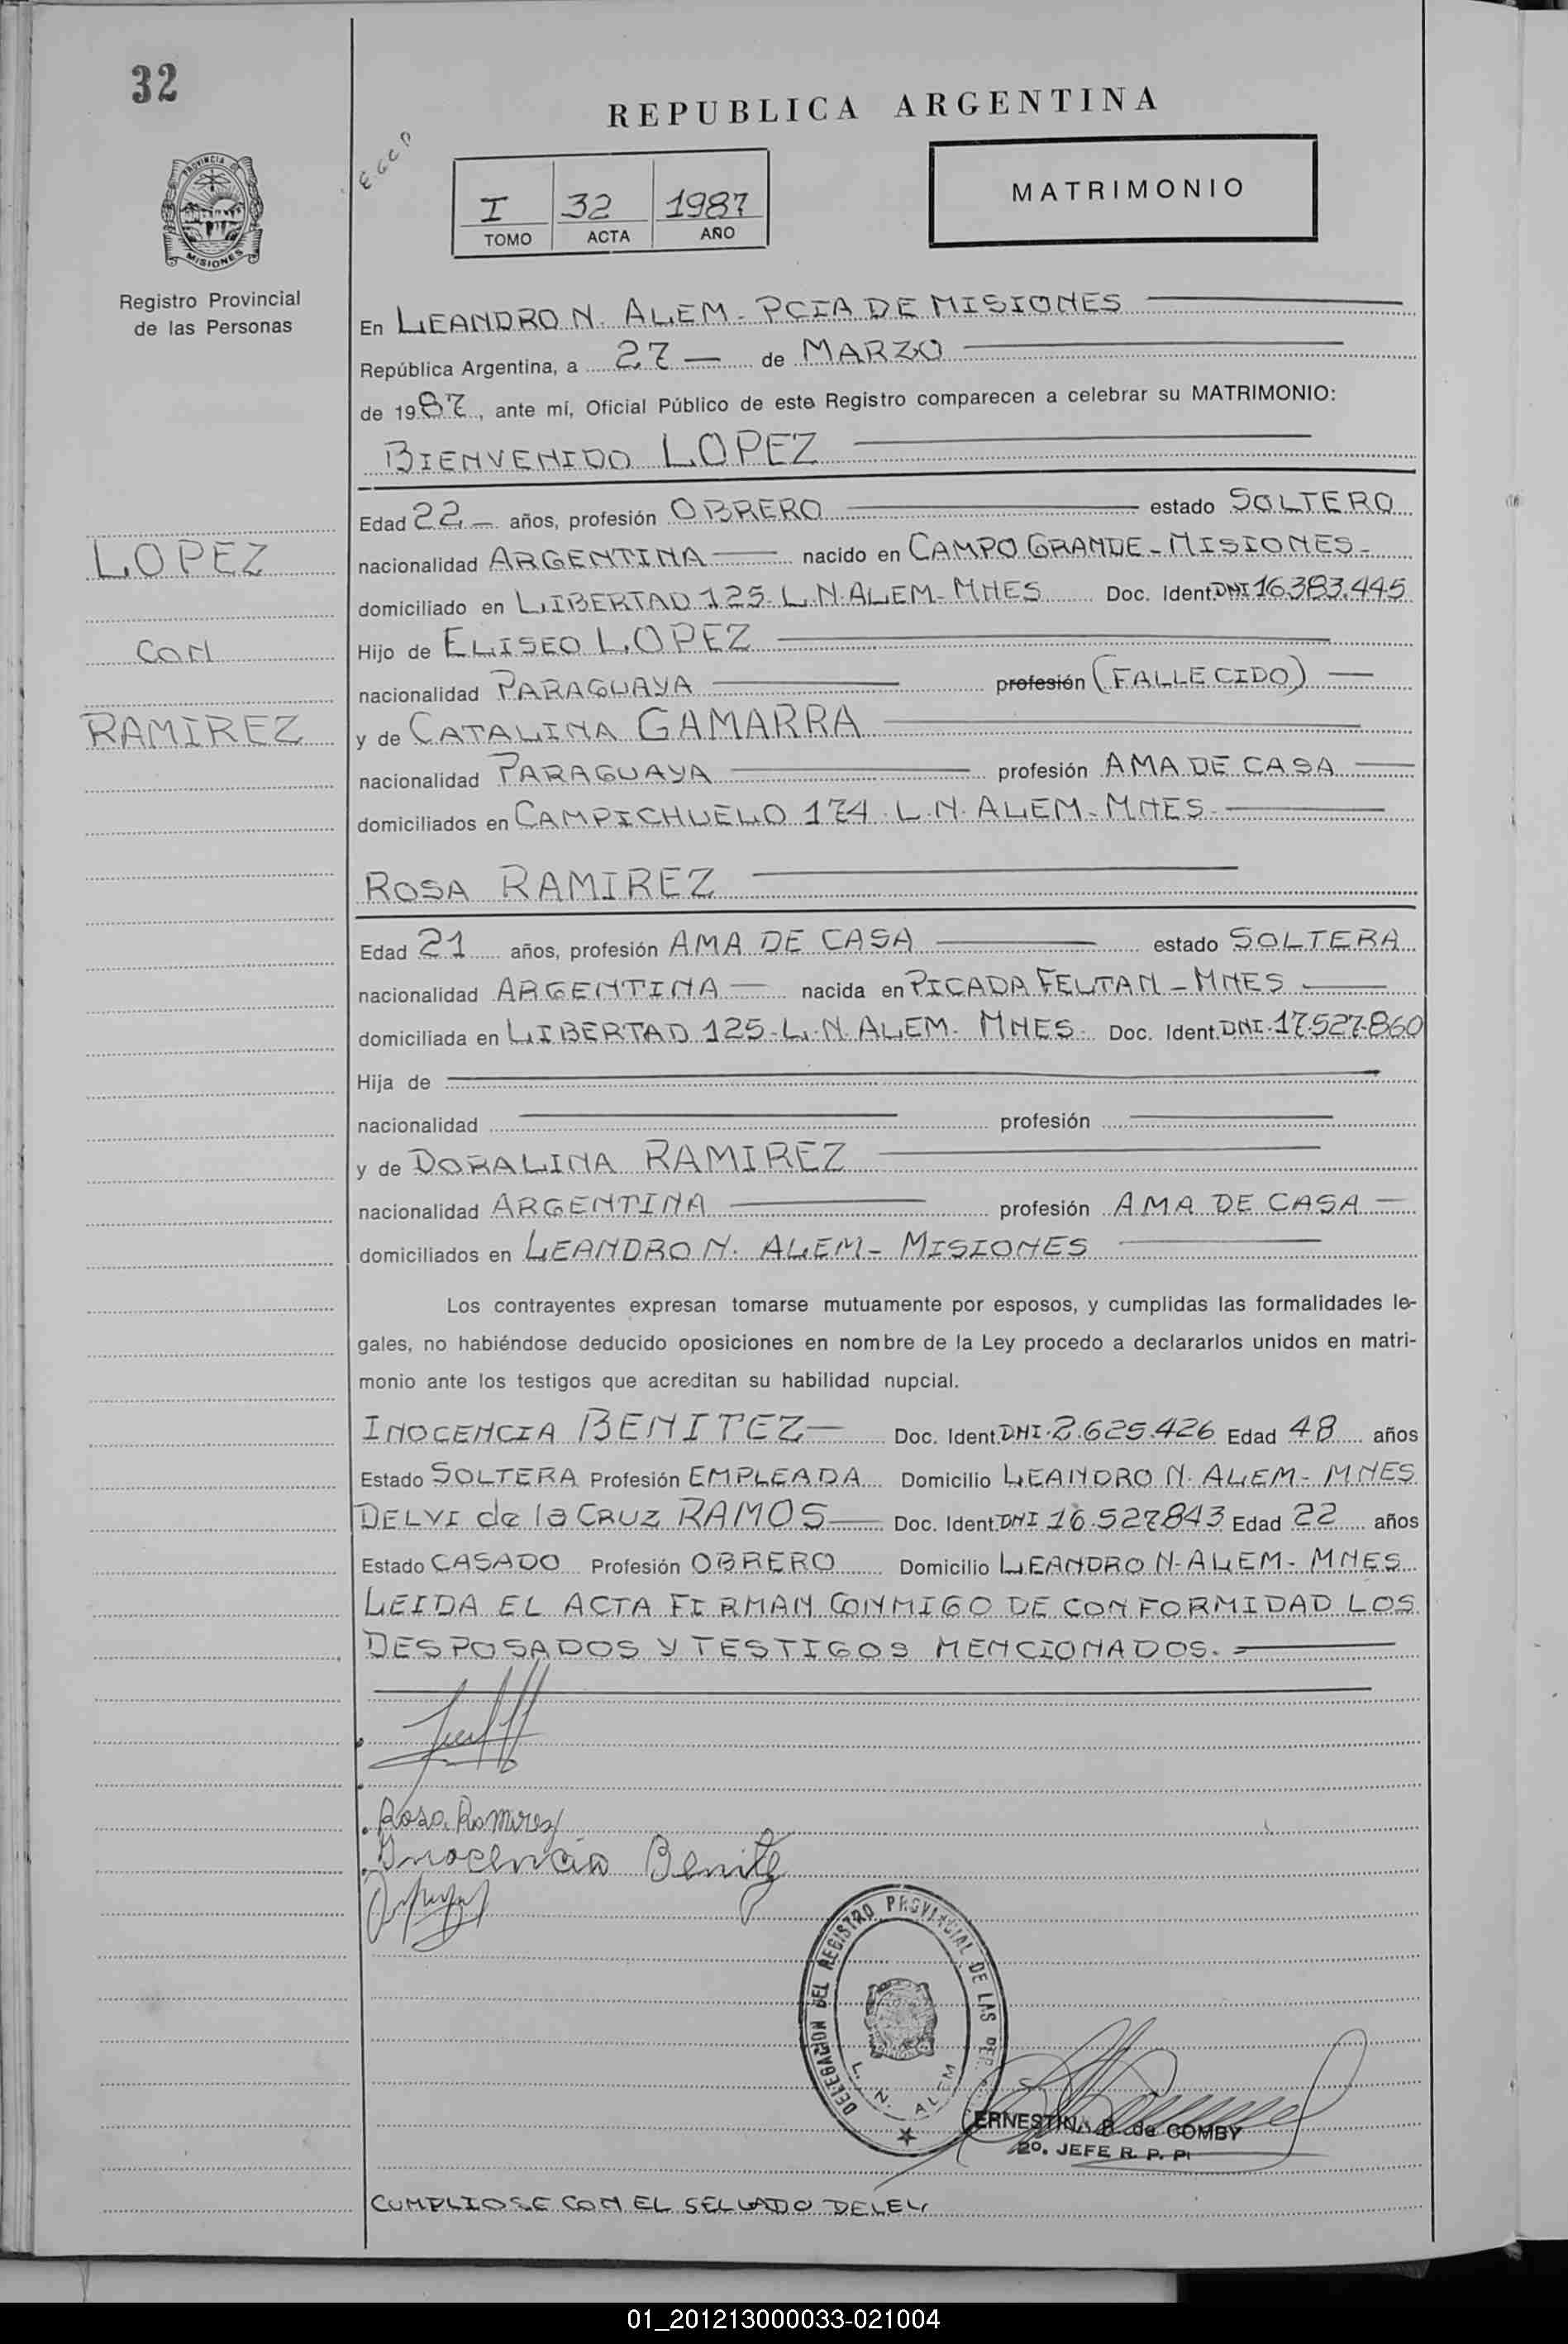 32
REPUBLICA ARGENTINA
PROVINCIA
MISIONES
Registro Provincial
de las Personas
I 32 1987
TOMO ACTA AÑO
MATRIMONIO
En LEANDRO N. ALEM - PCIA DE MISIONES
República Argentina, a 27 de MARZO
de 1987, ante mí, Oficial Público de este Registro comparecen a celebrar su MATRIMONIO:
BIENVENIDO LOPEZ
Edad 22 años, profesión OBRERO estado SOLTERO
LOPEZ
nacionalidad ARGENTINA nacido en CAMPO GRANDE - MISIONES -
domiciliado en LIBERTAD 125 - L.N. ALEM - MNES Doc. Ident. DNI 16.383.445
CON
Hijo de ELISEO LOPEZ
nacionalidad PARAGUAYA profesión (FALLECIDO)
RAMIREZ
y de CATALINA GAMARRA
nacionalidad PARAGUAYA profesión AMA DE CASA
domiciliados en CAMPICHUELO 174 - L.N. ALEM - MNES -
ROSA RAMIREZ
Edad 21 años, profesión AMA DE CASA estado SOLTERA
nacionalidad ARGENTINA nacida en PICADA FELTAN - MNES
domiciliada en LIBERTAD 125 - L.N. ALEM - MNES - Doc. Ident. DNI. 17.527.860
Hija de
nacionalidad profesión
y de DORALINA RAMIREZ
nacionalidad ARGENTINA profesión AMA DE CASA
domiciliados en LEANDRO N. ALEM - MISIONES
Los contrayentes expresan tomarse mutuamente por esposos, y cumplidas las formalidades le-
gales, no habiéndose deducido oposiciones en nombre de la Ley procedo a declararlos unidos en matri-
monio ante los testigos que acreditan su habilidad nupcial.
INOCENCIA BENITEZ Doc. Ident. DNI. 2.625.426 Edad 48 años
Estado SOLTERA Profesión EMPLEADA Domicilio LEANDRO N. ALEM - MNES
DELVI de la CRUZ RAMOS Doc. Ident. DNI 16.527.843 Edad 22 años
Estado CASADO Profesión OBRERO Domicilio LEANDRO N. ALEM - MNES
LEIDA EL ACTA FIRMAN CONMIGO DE CONFORMIDAD LOS
DESPOSADOS Y TESTIGOS MENCIONADOS.
Rosa Ramirez
Inocencia Benitez
DELEGACION DEL REGISTRO PROVINCIAL DE LAS PER
L. N. ALEM
ERNESTINA B. de COMBY
2º. JEFE R. P. P.
CUMPLIOSE CON EL SELLADO DE LEY
01_201213000033-021004